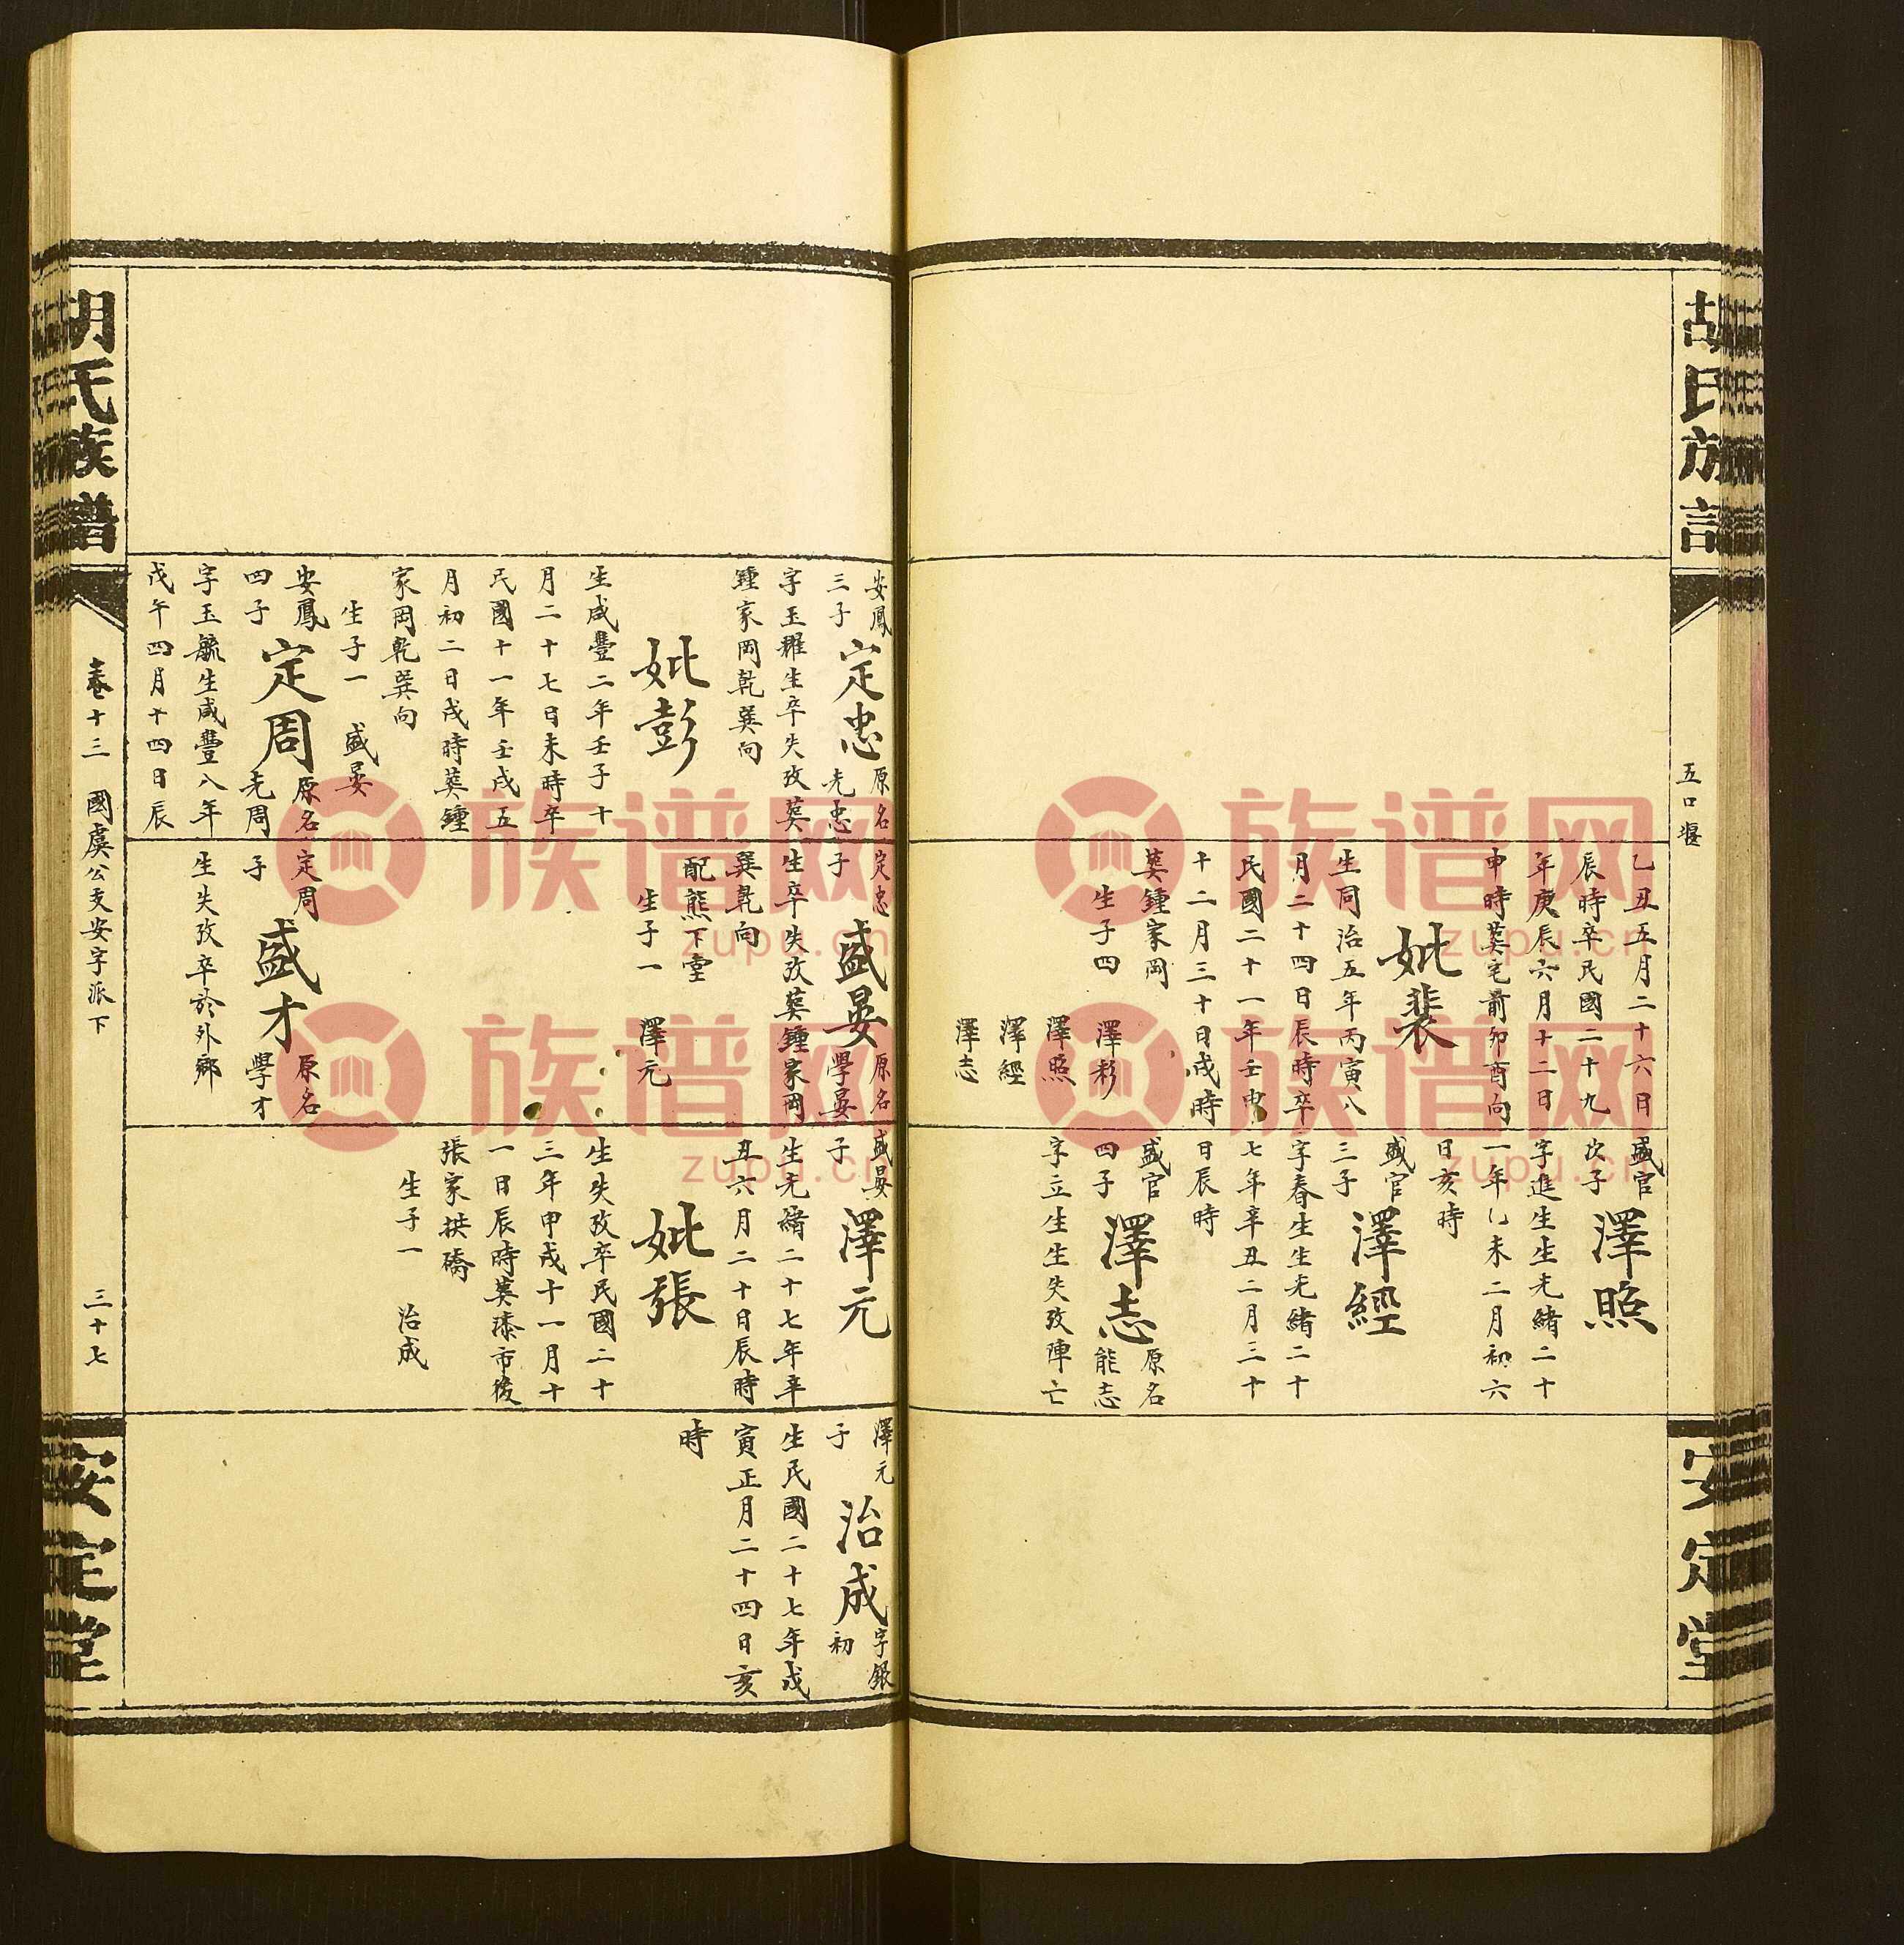 胡氏族譜
五口堰
安定堂
乙丑五月二十六日
辰時卒民國二十九
年庚辰六月十二日
申時葬宅前卯酉向
妣裴
生同治五年丙寅八
月二十四日辰時卒
民國二十一年壬申
十二月三十日戌時
葬鍾家岡
生子四 澤彩
澤照
澤經
澤志
盛官
次子
澤照
字進生生光緒二十
一年乙未二月初六
日亥時
盛官
三子
澤經
字春生生光緒二十
七年辛丑二月三十
日辰時
盛官
四子
澤志
原名
能志
字立生生失攷陣亡
安鳳
三子
定忠
原名
光忠
字玉耀生卒失攷葬
鍾家岡乾巽向
妣彭
生咸豐二年壬子十
月二十七日未時卒
民國十一年壬戌五
月初二日戌時葬鍾
家岡乾巽向
生子一 盛晏
安鳳
四子
定周
原名
光周
字玉毓生咸豐八年
戊午四月十四日辰
定忠
子
盛晏
原名
學晏
生卒失攷葬鍾家岡
巽乾向
配熊下堂
生子一 澤元
定周
子
盛才
原名
學才
生失攷卒於外鄉
盛晏
子
澤元
生光緒二十七年辛
丑六月二十日辰時
妣張
生失攷卒民國二十
三年甲戌十一月十
一日辰時葬漆市後
張家拱磚
生子一 治成
澤元
子
治成
字銀
初
生民國二十七年戊
寅正月二十四日亥
時
胡氏族譜
卷十三 國虞公支安字派下
三十七
安定堂
族谱网
zupu.cn
族谱网
zupu.cn
族谱网
zupu.cn
族谱网
zupu.cn